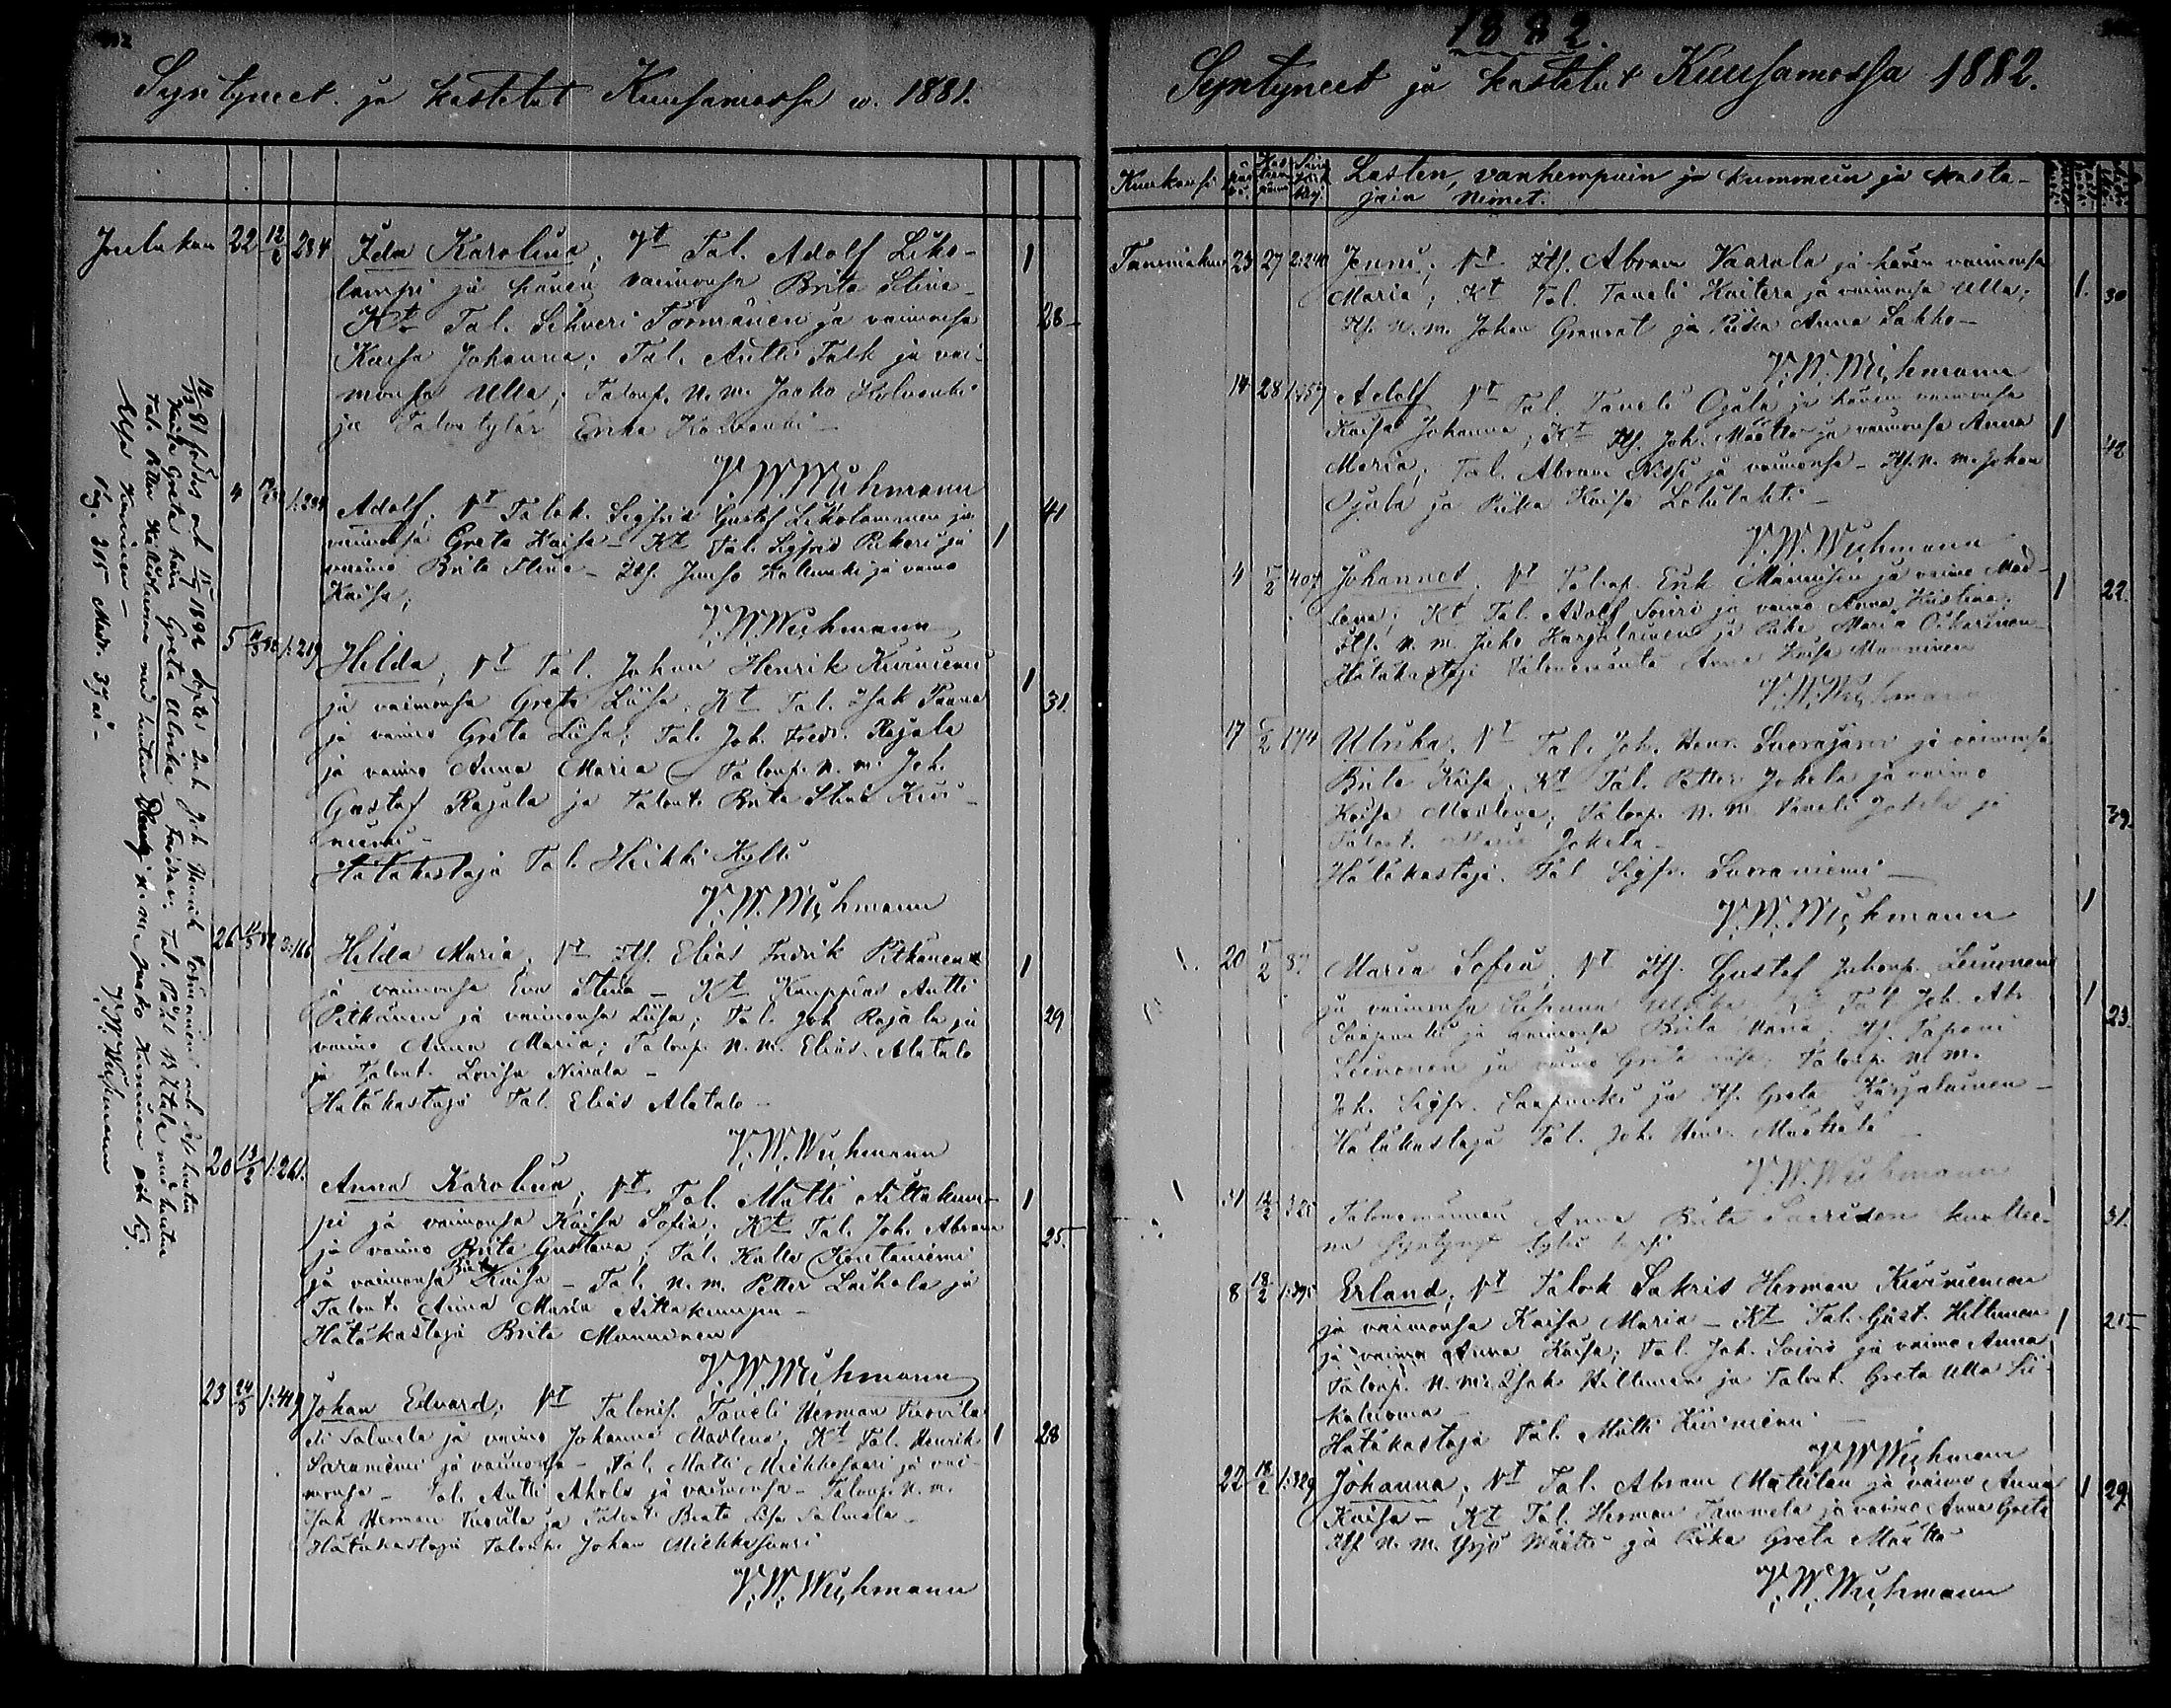 Syntyneet ja kastetut Kuusamossa v. 1881.
Joulukuu 22 12/2 284 Ida Karolina, Vt Tal. Adolf Liko- 1
lampi ja hänen vaimonsa Brita Stina - 28
Kt Tal. Sihveri Törmänen ja vaimonsa
Kaisa Johanna; Tal. Antti Falk ja vai-
monsa Ulla; Talonp. N. m. Jaako Kolvanki
ja Talontytär Erika Kolvanki -
V. W. Wichmann
4 1:288 Adolf, Vt Talok. Sigfrid Gustaf Likolammen ja 41
vaimonsa Greta Kaisa - Kt Tal. Sigfrid Pikari ja 1
vaimo Brita Stina - Its. Junso Kallunki ja vaimo
Kaisa;
V. W. Wichmann
5 1:219 Hilda, Vt Tal. Johan Henrik Kiviniemi 1
ja vaimonsa Greta Liisa, Kt Tal. Isak Paana 31.
ja vaimo Greta Liisa; Tal. Joh. Fredr. Rajala
ja vaimo Anna Maria - Talonp. N. m. Joh.
Gustaf Rajala ja Talont. Brita Stina Kivi-
niemi -
Hätäkastaja Tal. Heikki Kylli
V. W. Wichmann
26 3:166 Hilda Maria, Vt Its. Elias Fredrik Pitkänen 1
ja vaimonsa Eva Stina - Kt Kauppias Antti
Pitkänen ja vaimonsa Liisa; Tal. Joh. Rajala ja 29
vaimo Anna Maria; Talonp. N. m. Elias Alatalo
ja Talont. Lovisa Nivala -
Hätäkastaja Tal. Elias Alatalo -
V. W. Wichmann
20 13/2 1:261. Anna Karolina, Vt Tal. Matti Aittakum- 1
pi ja vaimonsa Kaisa Sofia; Kt Tal. Joh. Abram
ja vaimo Brita Gustava; Tal. Kalle Kontaniemi 25.
ja vaimonsa Brita Kaisa - Tal. N. m. Petter Laihola ja
Talont. Anna Maria Aittakumpu -
Hätäkastaja Brita Manninen
V. W. Wichmann
23 24/3 1:419 Johan Edvard, Vt Talonis. Taveli Herman Turvila
eli Salmela ja vaimo Johanna Madlena, Kt Tal. Henrik 1 28
Saraniemi ja vaimonsa - Tal. Matti Mickkosaari ja vai-
monsa - Tal. Antti Ahola ja vaimonsa - Talonp. N. m.
Isak Herman Turvila ja Talont. Beata Lisa Salmela -
Hätäkastaja Talonis. Johan Mickkosaari
V. W. Wichmann
12/12 81 föddes och 15/7 1894 döptes Inh. Joh. Henrik Törmänen och dess hustru
Kaisa Greta barn Greta Ulrika, Faddrar: Tal. Påhl Ylitalo med hustru
Tal. Petter Kallunki med hustru Dräng n. m. Jaako Karvinen och Pig.
Elsa Karvinen -
Pag. 315 Modr. 37 år -
V. W. Wichmann
1882.
Syntyneet ja kastetut Kuusamossa 1882.
Kuukausi Lasten, vanhempain ja kummien ja kasta-
jain nimet.
Tammikuu 23 27 2:240 Jenni, Vt Its. Abram Vaarala ja hänen vaimonsa
Maria; Kt Tal. Taneli Hoitera ja vaimonsa Ulla; 1. 30
Its. N. m. Johan Granrot ja Piika Anna Lahko -
V. W. Wichmann
14 28 Adolf Vt Tal. Taneli Ojala ja hänen vaimonsa
Kaisa Johanna; Kt Its. Joh. Määttä ja vaimonsa Anna 1
Maria; Tal. Abram Nissi ja vaimonsa - Its. N. m. Johan 42
Ojala ja Piika Kaisa Lohilahti -
V. W. Wichmann
4 5/2 407 Johannes, Vt Talonp. Erik Manninen ja vaimo Mad- 1 22.
lena; Kt Tal. Adolf Soivio ja vaimo Anna Kristina;
Its. N. m. Juho Karjalainen ja Piika Maria Oikarinen -
Hätäkastaja Talonemäntä Anna Kaisa Manninen
V. W. Wichmann
17 5/2 174 Ulrika, Vt Tal. Joh. Henr. Suorajärvi ja vaimonsa
Brita Kaisa, Kt Tal. Petter Jokela ja vaimo
Kaisa Madlena; Talonp. N. m. Taneli Jokela ja 39.
Talont. Maria Jokela -
Hätäkastaja Tal. Sigfr. Suoraniemi -
V. W. Wichmann 1
1. 20 5/2 87. Maria Sofia, Vt Its. Gustaf Juhonp. Leinonen
ja vaimonsa Susanna Ulrika, Kt Tal. Joh. Abr. 1
Saapunki ja vaimonsa Brita Maria; Its. Tapani 23.
Leinonen ja vaimo Greta Liisa; Talonp. N. m.
Joh. Sigfr. Saapunki ja Its. Greta Karjalainen -
Hätäkastaja Tal. Joh. Henr. Mustala
V. W. Wichmann
31 12/2 325 Talonemännän Anna Brita Saarisen kuollee- 31.
na syntynyt tytär lapsi
8 18/2 Erland, Vt Talok Sakris Herman Kiviniemen
ja vaimonsa Kaisa Maria - Kt Tal. Gust. Hiltunen 1 21
ja vaimo Anna Kaisa; Tal. Joh. Soivio ja vaimo Anna;
Talonp. N. m. Isak Hiltunen ja Talont. Greta Ulla Sii-
kaluoma -
Hätäkastaja Tal. Matti Kiviniemi -
V. W. Wichmann
22 18/2 1:329 Johanna, Vt Tal. Abram Matilan ja vaimo Anna 1 29.
Kaisa - Kt Tal. Herman Tammela ja vaimo Anna Greta
Its N. m. Yrjö Määttä ja Piika Greta Määttä
V. W. Wichmann